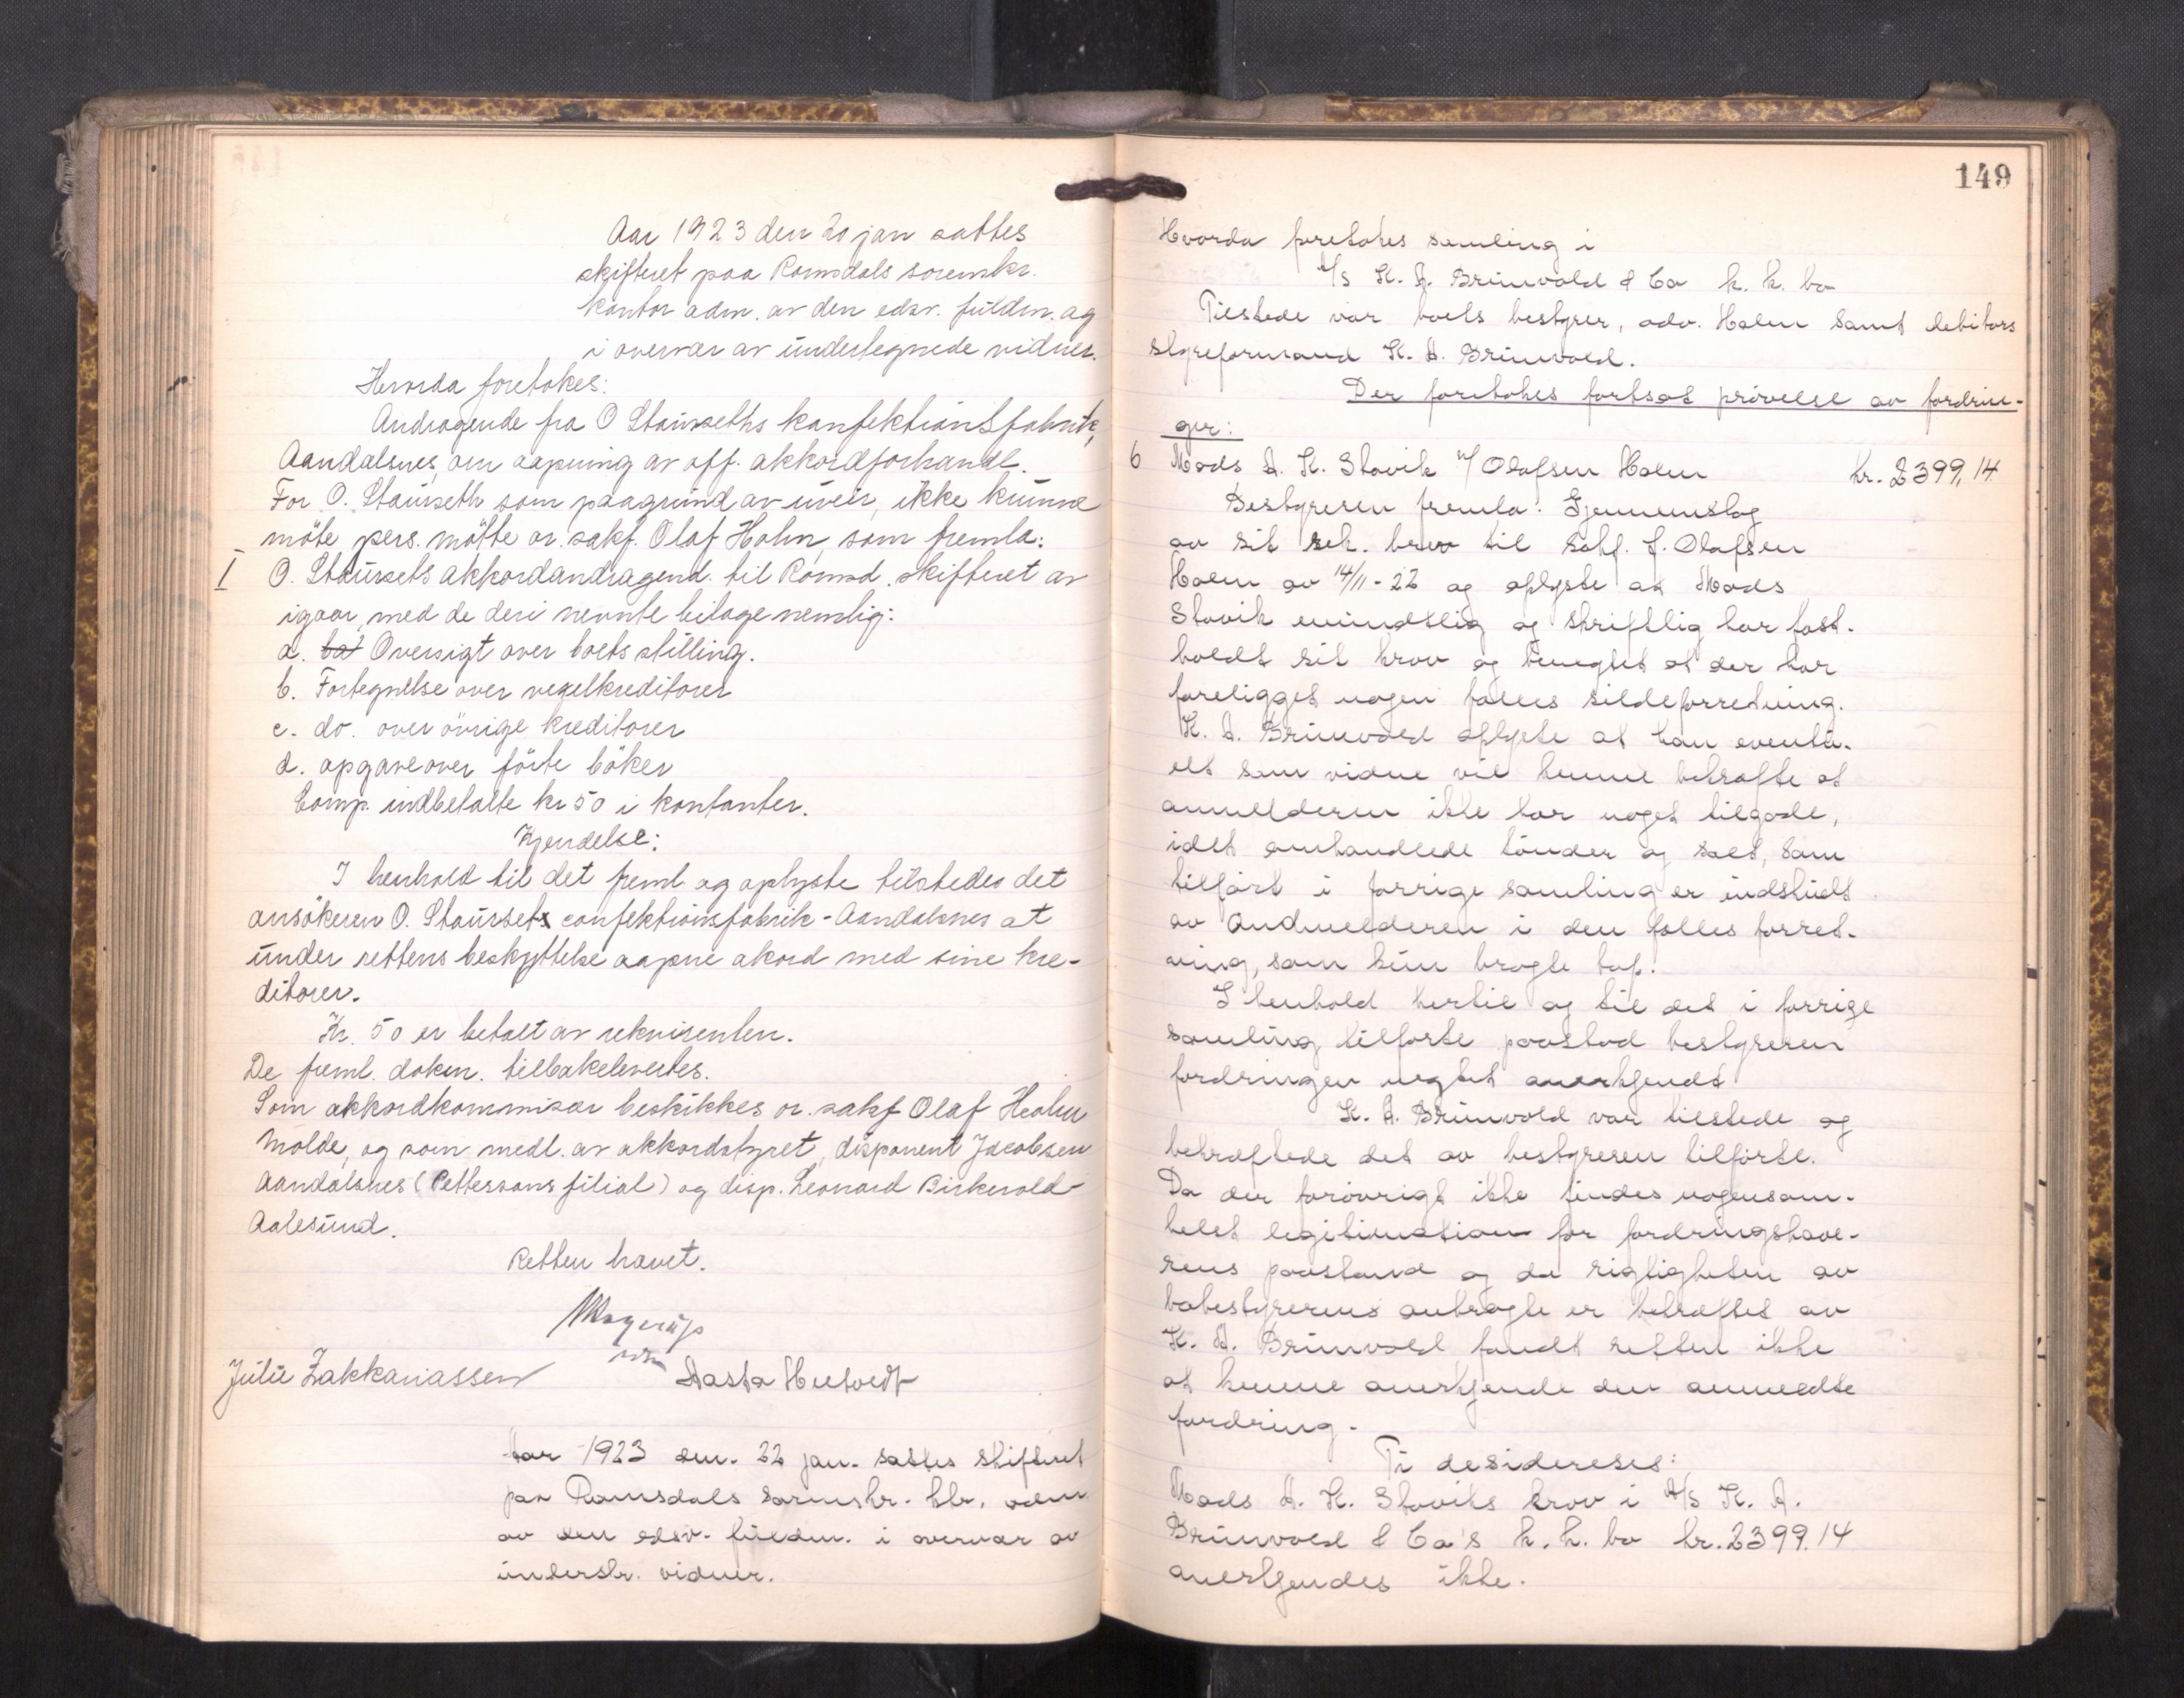 Aar 1923 den 20 jan sattes
skifteret paa Romsdals sorenskr.
kontor adm. av den edsv. fuldm. og
i overvær av undertegnede vidner.
Hvorda foretokes:
Andragende fra O Staurseths konfektionsfabrik,
Aandalsnes, om aapning av off. akkordforhandl.
For O. Staurseth som paagrund av uveir, ikke kunne
møte pers. møtte or. sakf. Olaf Holm, som fremla:
I O. Staursets akkordandragend. til Romsd. skifteret av
igaar, med de deri nevnte bilage nemlig:
a. bo Oversigt over boets stilling.
b. Fortegnelse over vexelkreditorer
c. do. over øvrige kreditorer
d. opgave over førte bøker
Comp. indbetalte kr 50 i kontanter.
Kjendelse:
I henhold til det freml og oplyste tilstedes det
ansøkeren O. Staursets confektionsfabrik - Aandalsnes at
under rettens beskyttelse aapne akord med sine kre-
ditorer.
Kr. 50 er betalt av rekvirenten.
De freml. dokm. tilbakelevertes.
Som akkordkommisær beskikkes or. sakf Olaf Holm
Molde, og som medl. av akkordstyret, disponent Jacobsen
Aandalsnes (Pettersons filial) og disp. Leonard Birkevold
Aalesund.
Retten hævet.
Julie Zakkariassen Aasta
Aar 1923 den. 22 jan. sattes skifteret
paa Romsdals sorenskr. ktr. adm
av den edsv. fuldm. i overvær av
underskr. vidner.
149
Hvorda foretokes samling i
A/S K. A. Brunvold & Co k. k. bo
Tilstede var boets bestyrer, adv. Holm samt debitors
styreformand K. A. Brunvold.
Der foretokes fortsat prøvelse av fordrin-
ger:
6 Mads A. K. Stavik v/ Olafsen Holm kr. 2399,14
Bestyreren fremla: Gjennemslag
av sit rek. brev til sakf. J. Olafsen
Holm av 14/11-22 og oplyste at Mads
Stavik mundtlig og skriftlig har fast-
holdt sit krav og benegtet at der har
foreligget nogen fælles sildeforretning.
K. A. Brunvold oplyste at han eventu-
elt som vidne vil kunne bekræfte at
anmelderen ikke har noget tilgode,
idet omhandlede tønder og salt, som
tilført i forrige samling er indskudt
av anmelderen i den fælles forret-
ning, som kun bragte tap.
I henhold hertil og til det i forrige
samling tilførte paastod bestyreren
fordringen negtet anerkjendt
K. A. Brunvold var tilstede og
bekræftede det av bestyreren tilførte.
Da der forøvrigt ikke findes nogensom-
helst legitimation for fordringshave-
rens paastand og da rigtigheten av
bobestyrerens anbragte er bekræftet av
K. A. Brunvold fandt retten ikke
at kunne anerkjende den anmeldte
fordring.
Ti desidereres:
Mads A. K. Staviks krav i A/S K. A.
Brunvold & Co's k. k. bo kr. 2399.14
anerkjendes ikke.